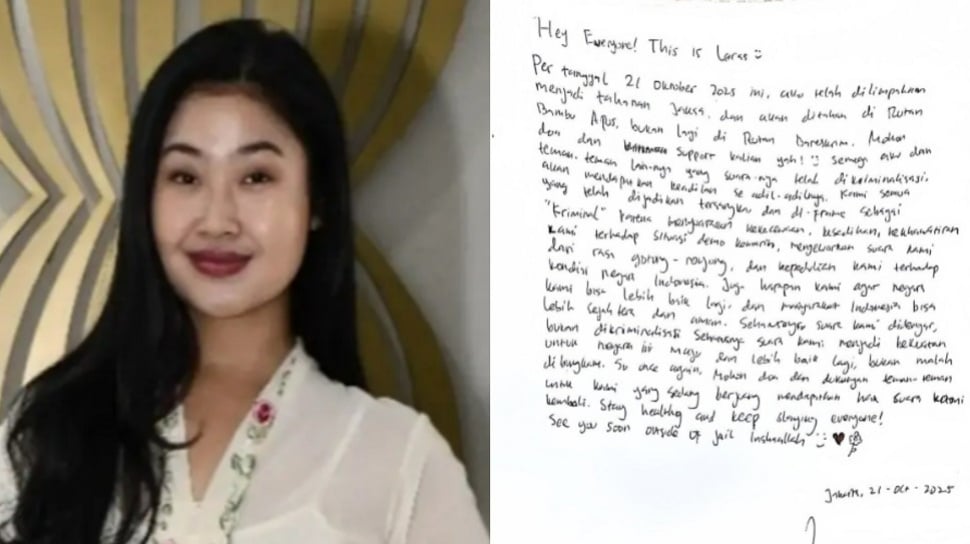 Hey Everyone! This is Laras
Per tanggal 21 Oktober 2025 ini, aku telah dilimpahkan
menjadi tahanan Jaksa, dan akan ditahan di Rutan
Bambu Apus, bukan lagi di Rutan Bareskrim. Mohon
doa dan support kalian yah! Semoga aku dan
teman-teman lain-nya yang suara-nya telah dikriminalisasi,
akan mendapatkan keadilan se adil-adilnya. Kami semua
yang telah dijadikan tersangka dan di-frame sebagai
"Kriminal" karena menyuarakan kekecewaan, kesedihan, kekhawatiran
kami terhadap situasi demo kemarin, menyebarkan suara kami
dari rasa gotong-royong, dan kepedulian kami terhadap
kondisi negara Indonesia. Juga harapan kami agar negara
kami bisa lebih baik lagi, dan masyarakat Indonesia bisa
lebih sejahtera dan aman. Seharusnya suara kami didengar,
bukan dikriminalisasi Seharusnya suara kami menjadi kekuatan
untuk negara ini maju dan lebih baik lagi, bukan malah
dibungkam. So once again, Mohon doa dan dukungan teman-teman
untuk kami yang sedang berjuang mendapatkan hak suara kami
kembali. Stay healthy and keep slaying everyone!
See you soon outside of jail Inshaallah
Jakarta, 21-Oct-2025